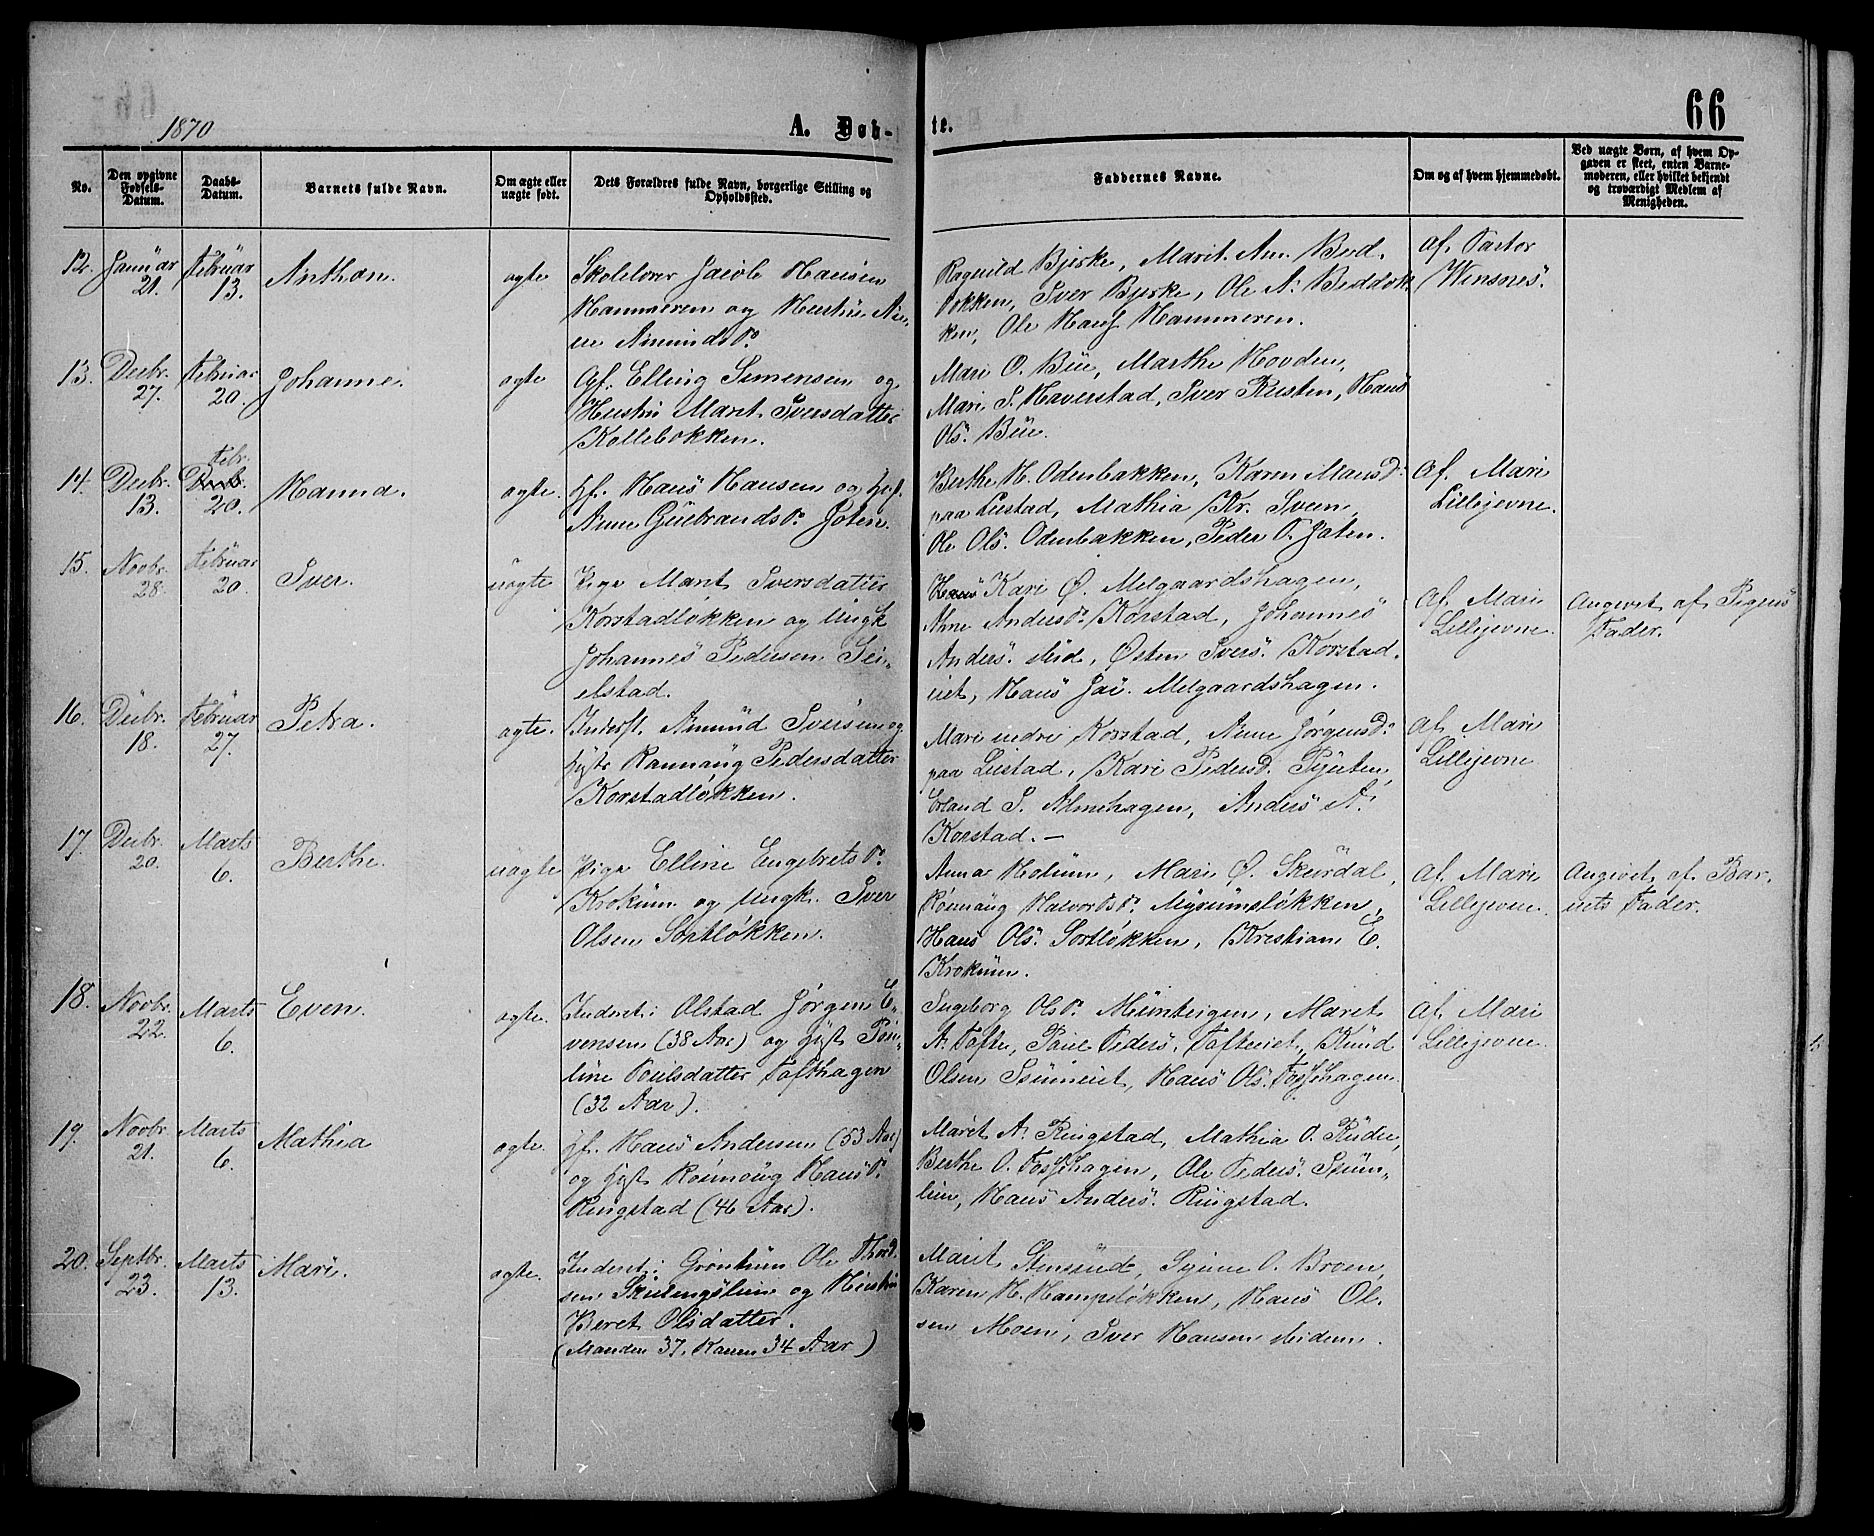 66
1870
A. Døb-
te.
No.
Den opgivne Fødsels-Datum.
Daabs-Datum.
Barnets fulde Navn.
Om ægte eller uægte født.
Dets Forældres fulde Navn, borgerlige Stilling og Opholdssted.
Faddernes Navne.
Om og af hvem hjemmedøbt.
Ved uægte Børn, af hvem Opgaven er skeet, enten Barnemoderen, eller hvilket bekjendt og troværdigt Medlem af Menigheden.
12. Januar 21. Februar 13. Anthon. ægte
Skolelærer Jacob Hansen
Hammeren og Hustru
Amunds D.
Ragnild Bjerke, Marit An.
Iver Bjerke, Ole A.
Ole Hans Hammeren.
af. Pastor
Winsnes.
13. Decbr. 27. Februar 20. Johanne. ægte
Gf. Elling Simensen og
Hustru Marit Iversdatter
Kollebækken.
Mari O. Bue, Marthe Hovden,
Mari S. Haverstad, Iver Kusten, Hans
Ols. Bue.
14. Decbr. 13. Febr. 20. Hanna. ægte.
Hans Hansen og
Anne Gulbrands D. Joten.
Berthe H. Odenbakken, Karen Hans D.
paa Listad, Mathia Kr. Sveen,
Ole Ols. Odenbakken, Peder O. Joten.
af. Mari
Lillejevne.
15. Novbr. 28. Februar 20. Iver. uægte
Pige Marit Iversdatter
Korstadløkken og Ungk.
Johannes Pedersen Sei-
elstad.
Kari Ø. Melgaardshagen,
Anne Anders D. Korstad, Johannes
Anders. ibid, Østen Ivers. Korstad-
eiet, Hans Jac. Melgaardshagen.
af. Mari
Lillejevne.
Angivet af Pigens
Fader.
16. Decbr. 18. Februar 27. Petra. ægte.
Inderst. Amund Iversen og
Rannaug Pedersdatter
Korstadløkken.
Mari nedre Korstad, Anne Jørgens D.
paa Listad, Kari Peders D.
Erland S. Almehagen, Anders A.
Korstad. —
af. Mari
Lillejevne
17. Decbr. 20. Marts 6. Berthe. uægte
Pige Elline Engebrets D.
Krokum og Ungk. Iver
Olsen Sortløkken.
Anna Holum, Mari Ø. Skurdal,
Rønnaug Halvords D. Myrumsløkken,
Hans Ols. Sortløkken, Kristian E.
Krokum.
af. Mari
Lillejevne.
Angivet af Bar-
nets Fader.
18. Novbr. 22. Marts 6. Even. ægte.
Inderst: Olstad Jørgen E-
vensen (38 Aar) og Pou-
line Poulsdatter Tofthagen
(32 Aar).
Ingeborg Ols D. Marit
A. Tofte, Paul Peders. Tofteeiet, Knud
Olsen Hans Ols. Tofthagen.
af. Mari
Lillejevne.
19. Novbr. 21. Marts 6. Mathia ægte.
Hans Andersen (53 Aar)
og Rønnoug Hans D.
Ringstad (46 Aar).
Marit A. Ringstad, Mathia O. Ruden,
Berthe O. Tofthagen, Ole Peders.
Hans Anders. Ringstad.
20. Septbr. 23. Marts 13. Mari. ægte.
Inderst: Ole Thord-
sen og Hustru
Beret Olsdatter.
(Manden 37, Konen 34 Aar)
Marit Stensrud, O. Broen,
Karen H. Hampeløkken, Hans Ol-
sen Moen, Iver Hansen ibidem.